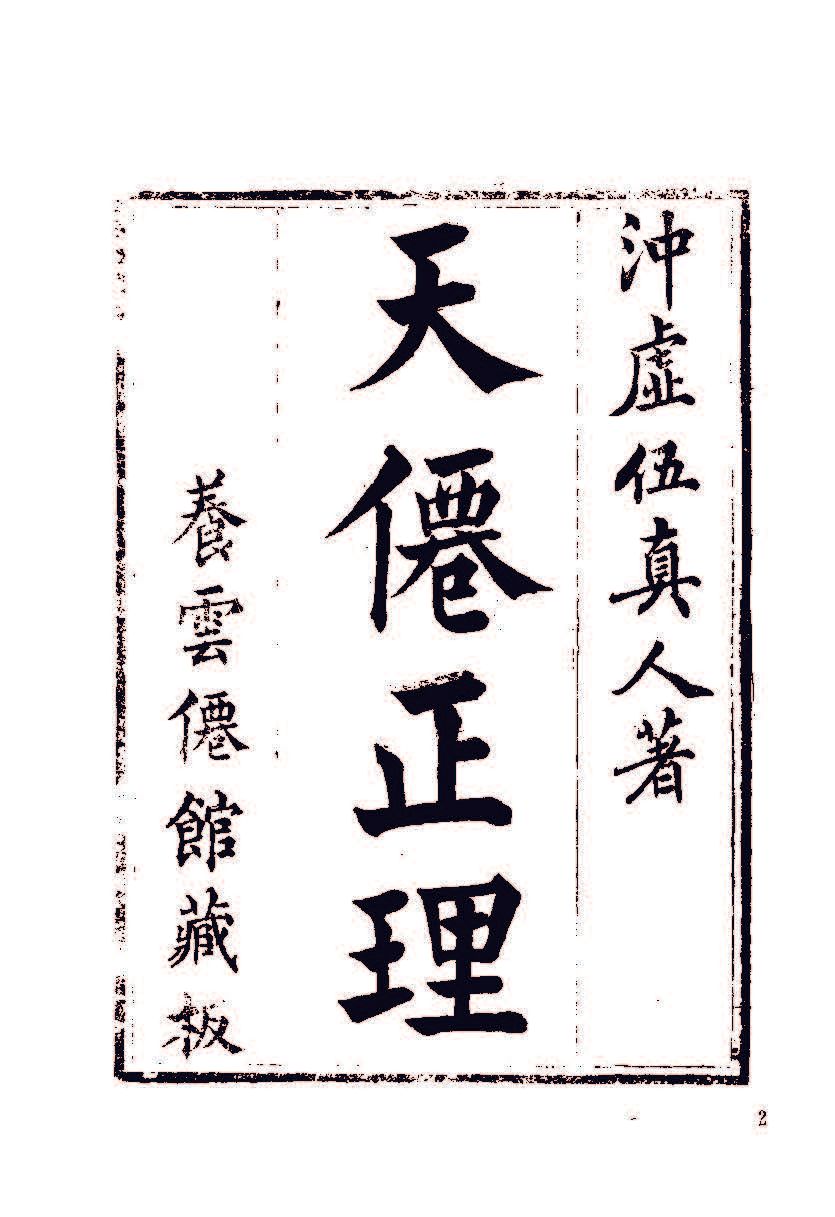 沖虛伍真人著
天僊正理
養雲僊館藏板
2